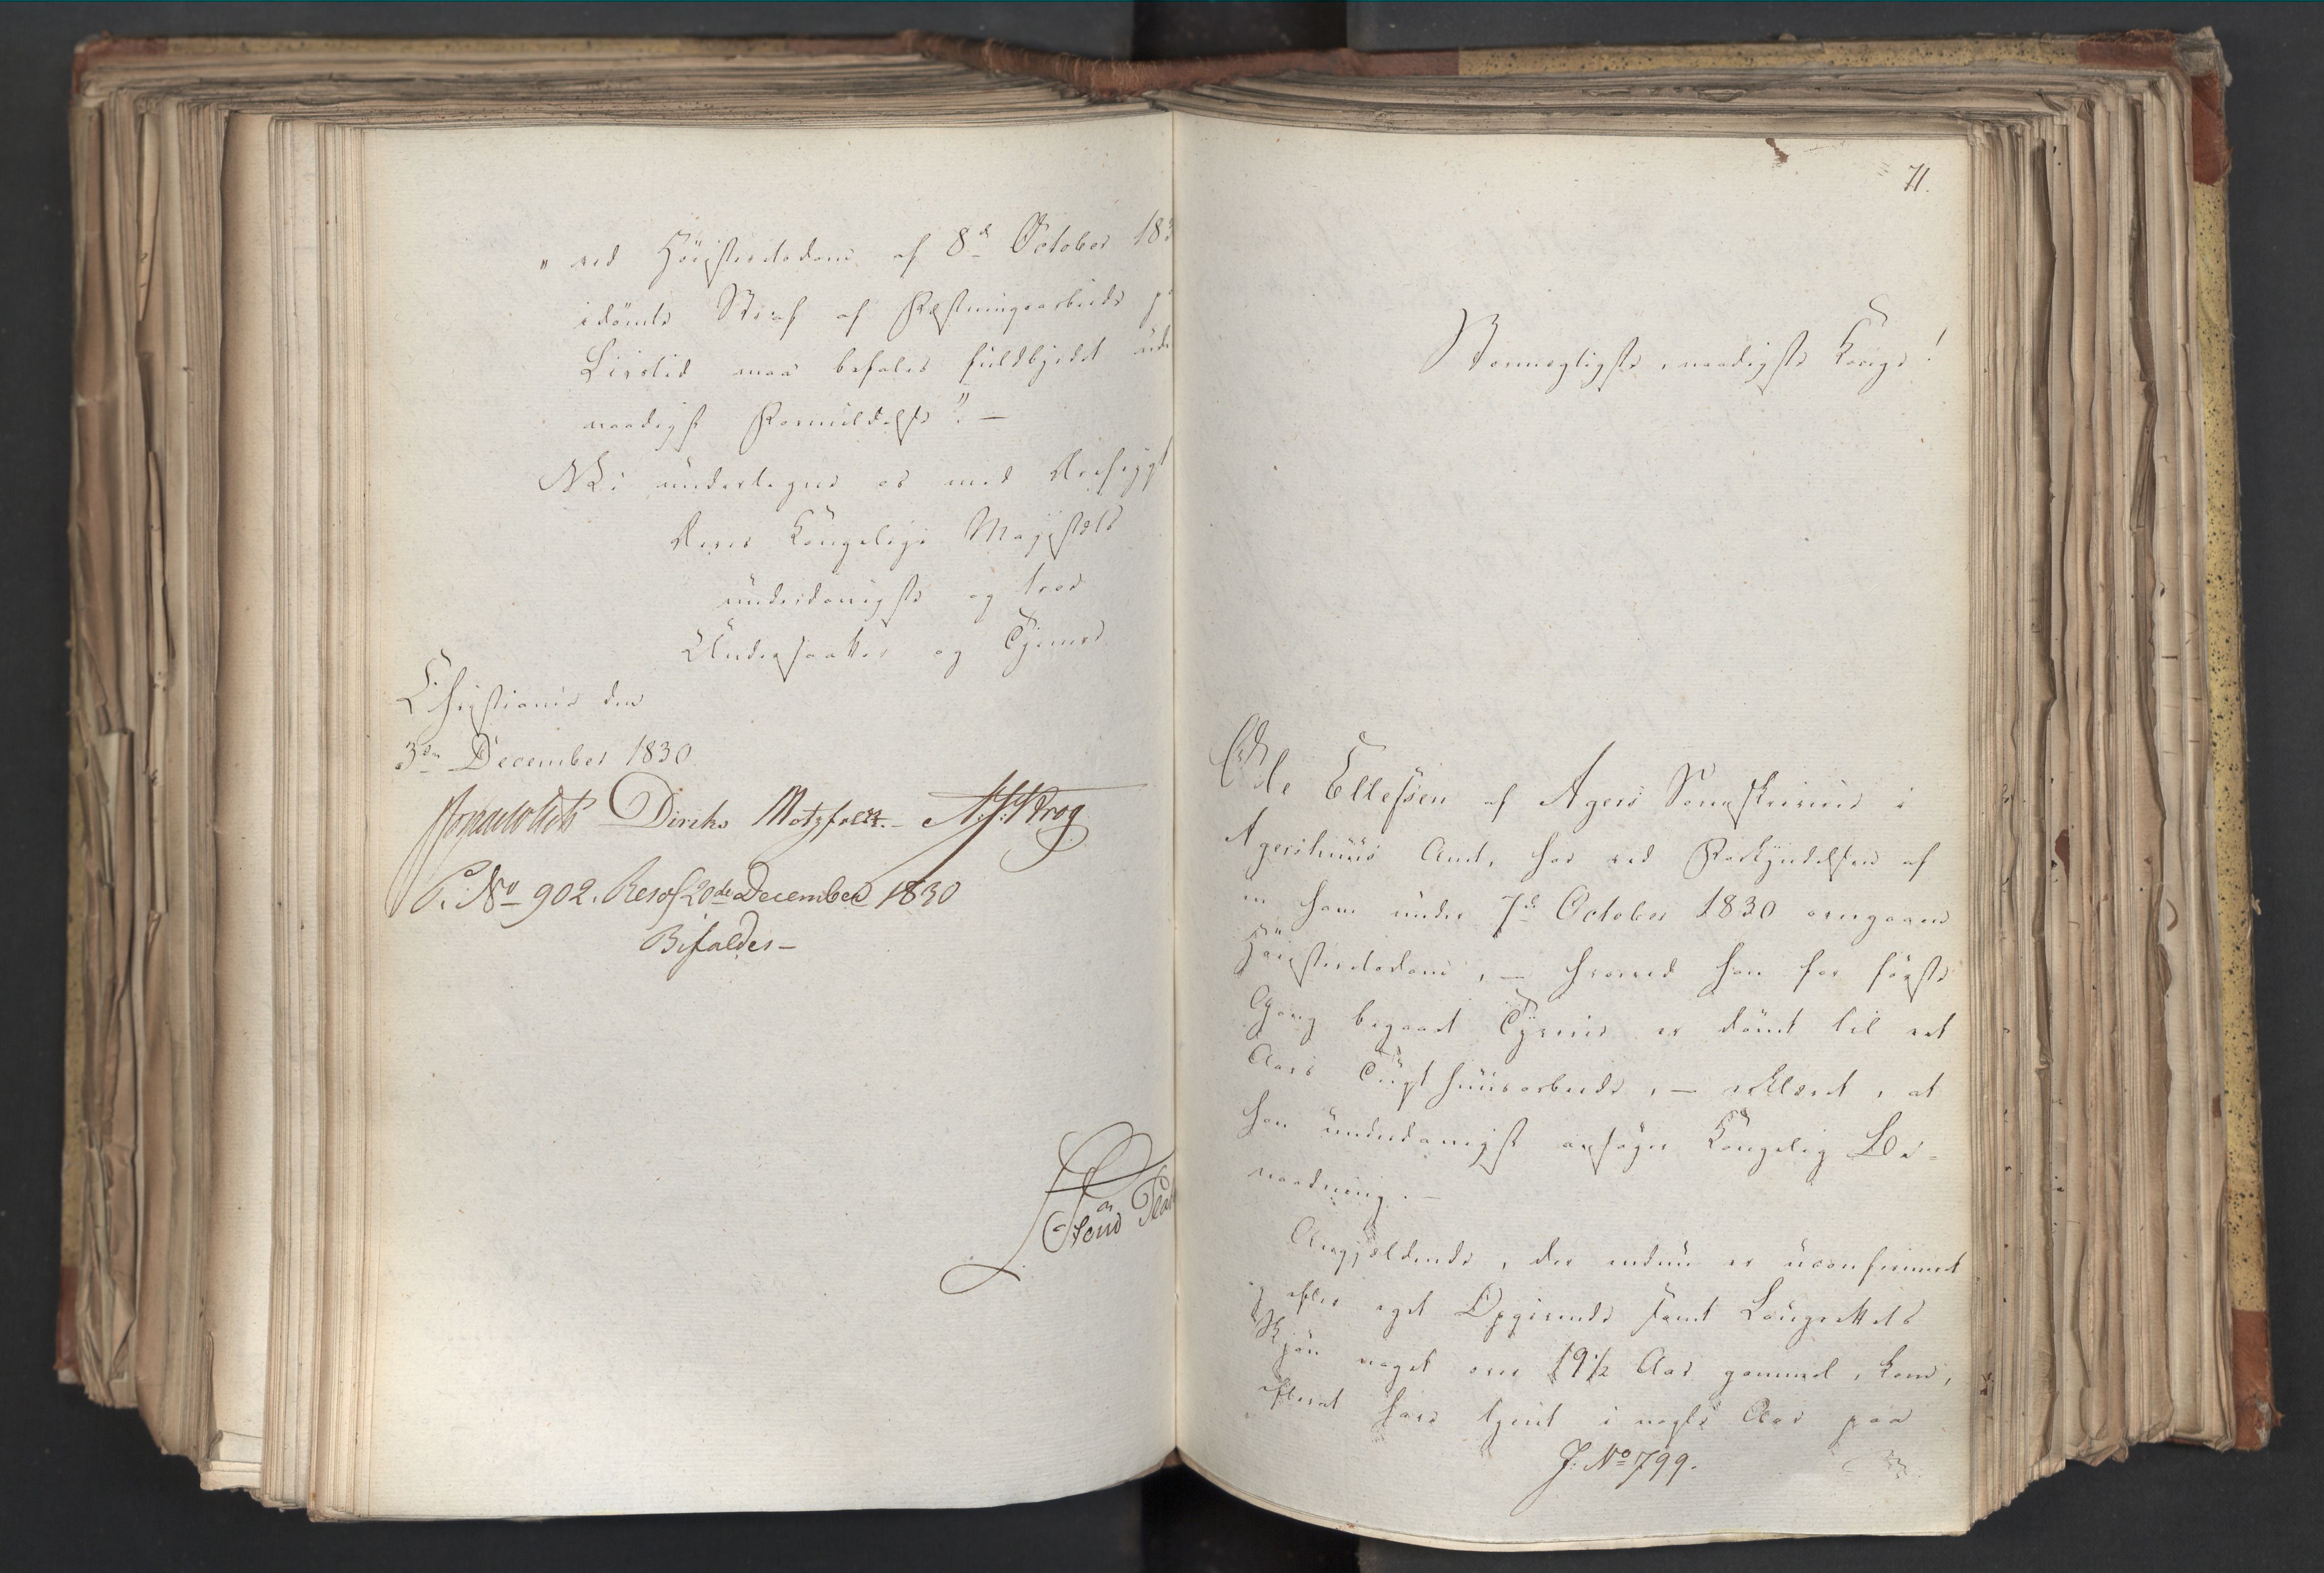 " ved Höiesteretsdom af 8de October 183
idömte Straf af Fæstningsarbeide p
Livstid maa befales fuldbyrdet ude
naadigst Formildelse". —
Vi undertegne os med Dveb­sygt
Deres Kongelige Majestæts
underdanigste og troe
Undersaatter og Tjenere
Christiania den
3die December 1830.
Diriks Motzfeldt. — Krog
P: No 902. Resol 20de December 1830
Bifaldes —
71.
Stormægtigste, naadigste Konge!
Ole Ellefsen af Agers Sogneskriverie i
Agershuus Amt, har ved Forkyndelsen af
en ham under 7de October 1830 overgaaen
Höiesteretsdom, — hvorved han for förste
Gang begaaet Tyverie er dömt til eet
Aars Tugthuusarbeide, — erklæret, at
han underdanigst ansöger Kongelig Be-
naadning. —
Angjældende, der endnu er uconfirmeret
og efter eget Opgivende samt Laugrettets
Skjön noget over 19 1/2 Aar gammel, kom,
efterat have tjent i nogle Aar paa
J: No 799.